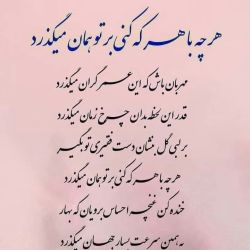 هر چه با هر که کنی بر تو همان میگذرد
مهربان باش که این عمر گران میگذرد
قدر این لحظه بدان چرخ زمان میگذرد
بر لبی گل بنشان دست فقیری تو بگیر
هر چه با هر که کنی بر تو همان میگذرد
خنده کن غنچه احساس برویان که بهار
به همین سرعت بسیار جهان میگذرد